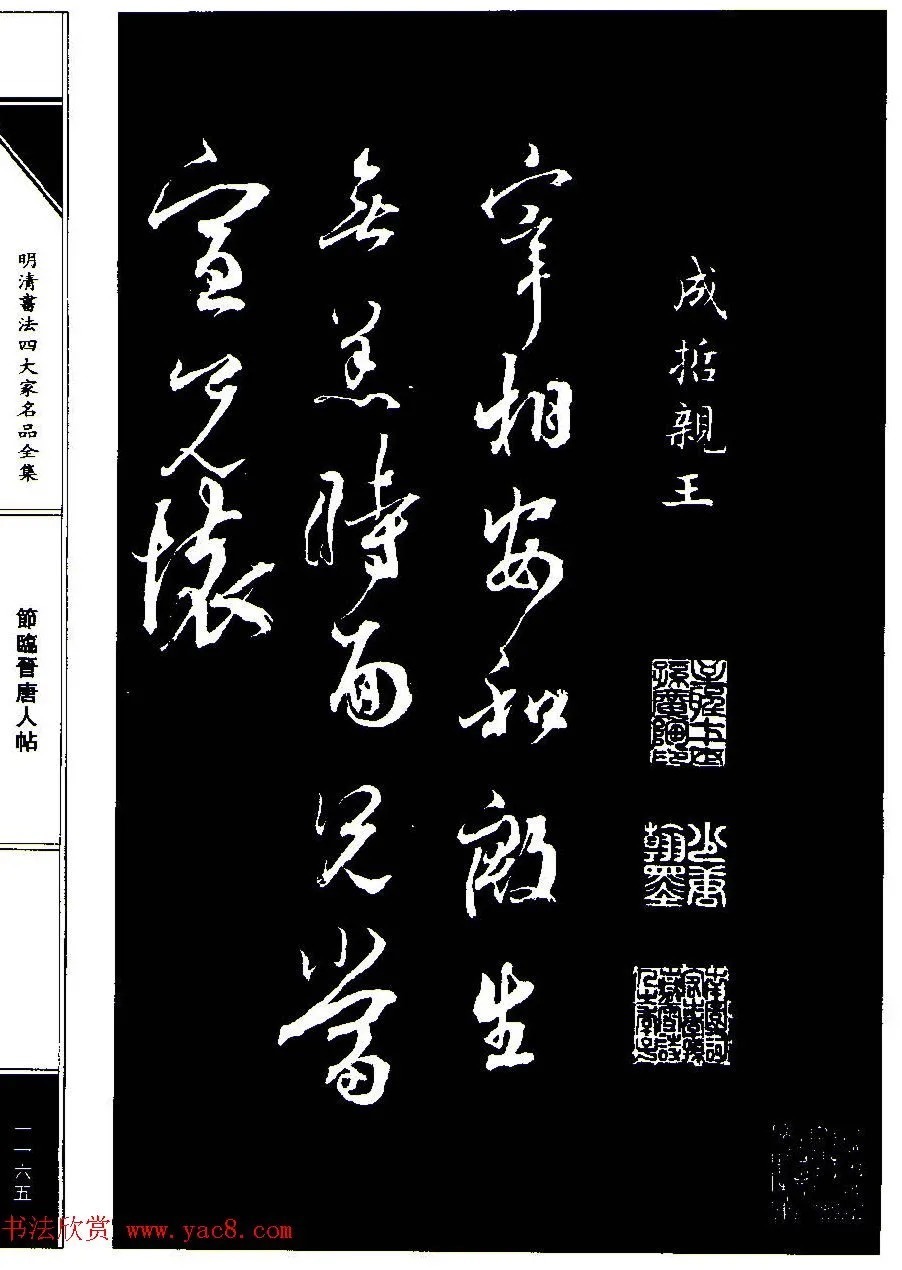 成哲親王
宰相安和殷生
無恙時面兄當
宣兄懷
少唐翰墨
明清書法四大家名品全集
節臨晉唐人帖
一一六五
书法欣赏 www.yac8.com